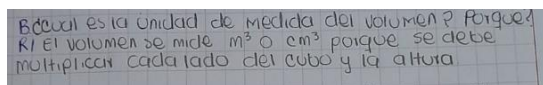 B¿cual es la unidad de medida del volumen? Porque?
R/ El volumen se mide m³ o cm³ porque se debe
multiplicar cada lado del cubo y la altura